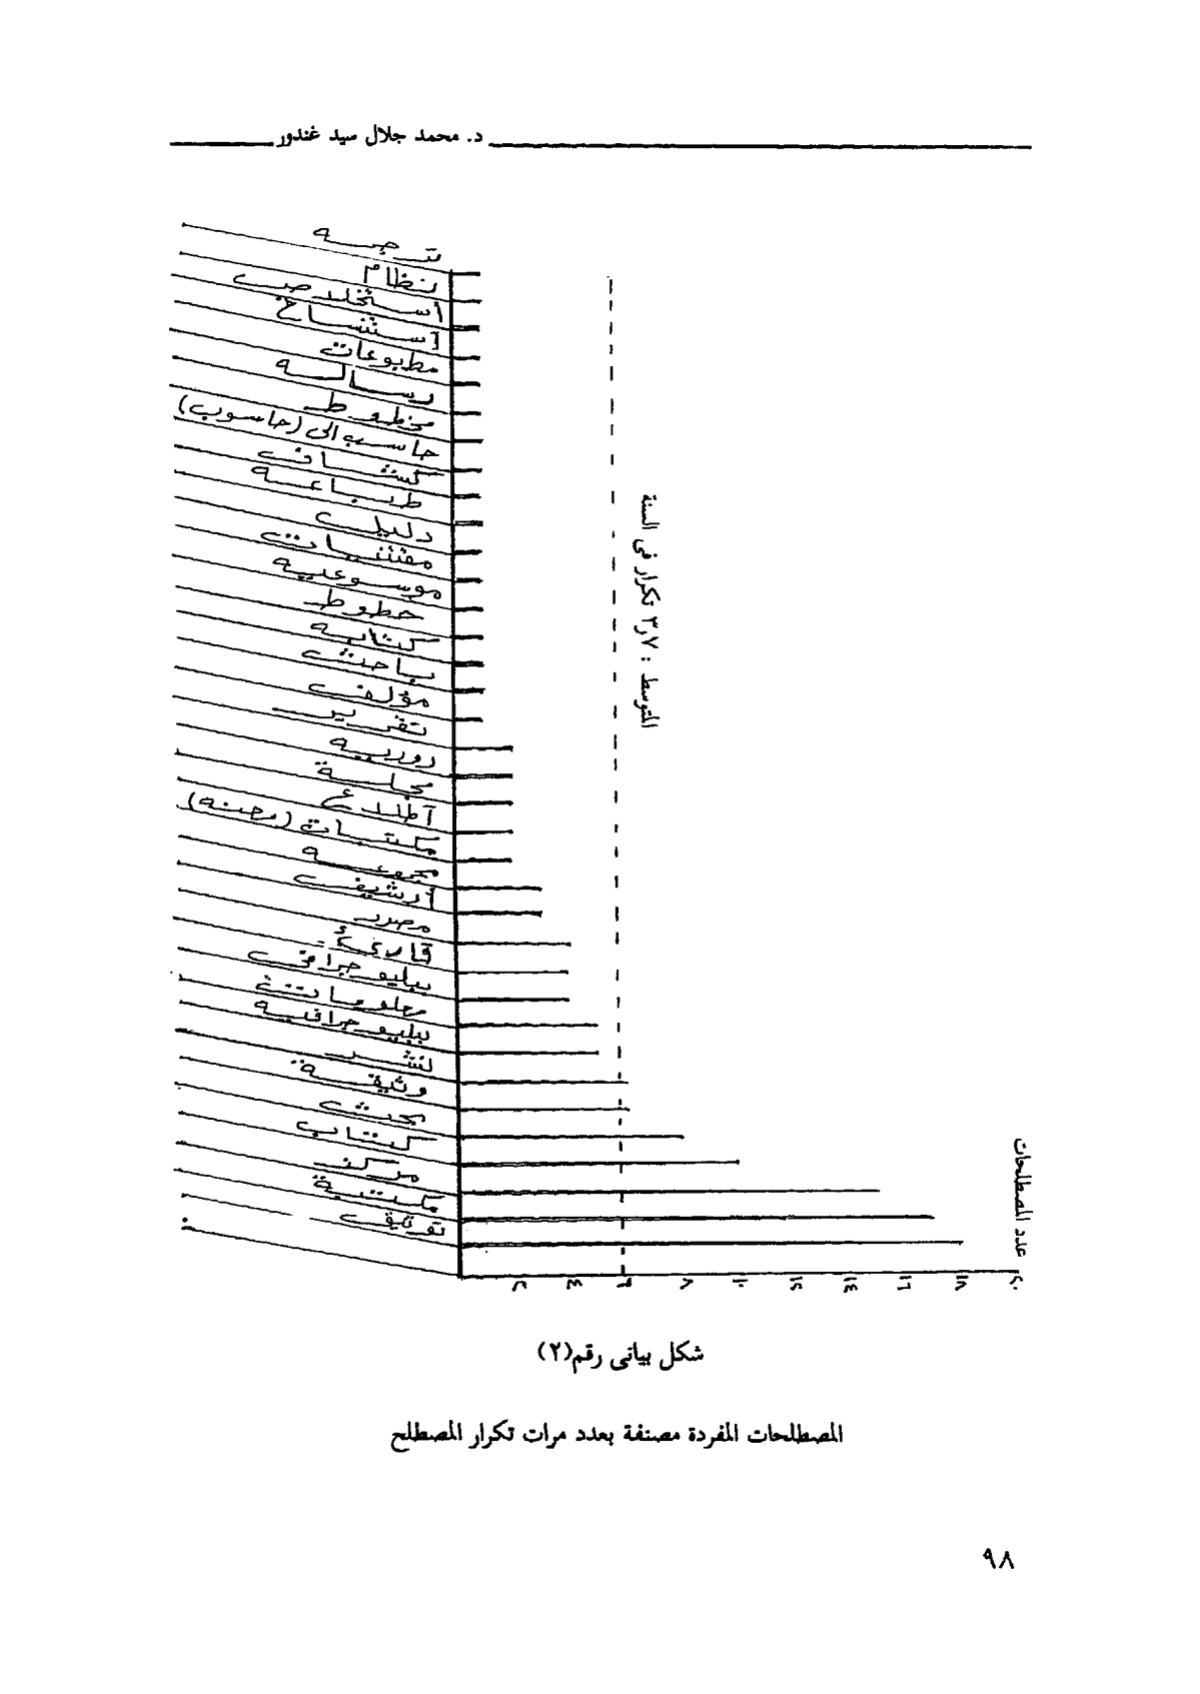 د. محمد جلال سيد غندور
ترجمه
نظام
استخلاص
استنساخ
مطبوعات
رساله
مخطوط
حاسب الى (حاسوب)
كشاف
طباعه
دليل
مقتنيات
موسوعيه
خطوط
كتابه
باحث
مؤلف
تقرير
دوريه
مجلة
اطلاع
مكتبات (مهنه)
مجموعه
أرشيف
مصدر
قارئ
ببليوجرافى
معلومات
ببليوجرافيه
نشر
وثيقة
بحث
كتاب
مركز
مكتبة
توثيق
المتوسط : ٣٫٧ تكرار فى السنة
عدد المصطلحات
٢ ٤ ٦ ٨ ١٠ ١٢ ١٤ ١٦ ١٨ ٢٠
شكل بيانى رقم(٢)
المصطلحات المفردة مصنفة بعدد مرات تكرار المصطلح
٩٨